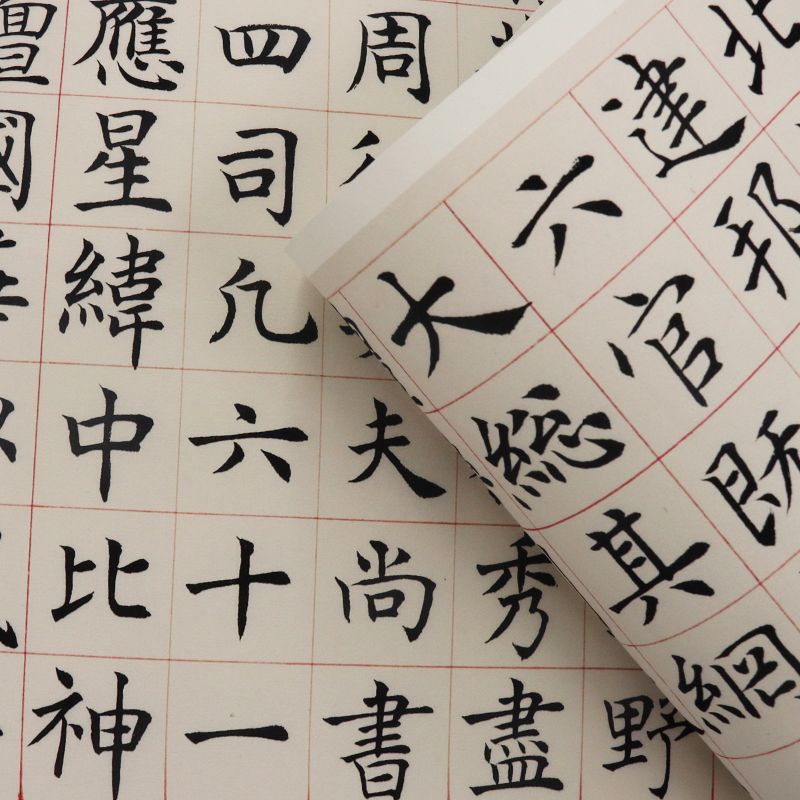 北
建邦
六官既
大總其綱
野
秀盡
周
夫尚書
四司凡六十一
應星緯中比神
國